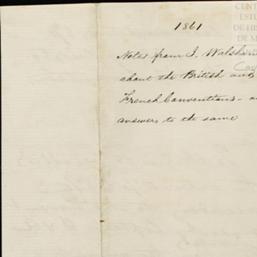 1861
Notes from J. Walsham
about the British and
French Conventions - a
answers to the same
CENT
ESTU
DE HI
DE M